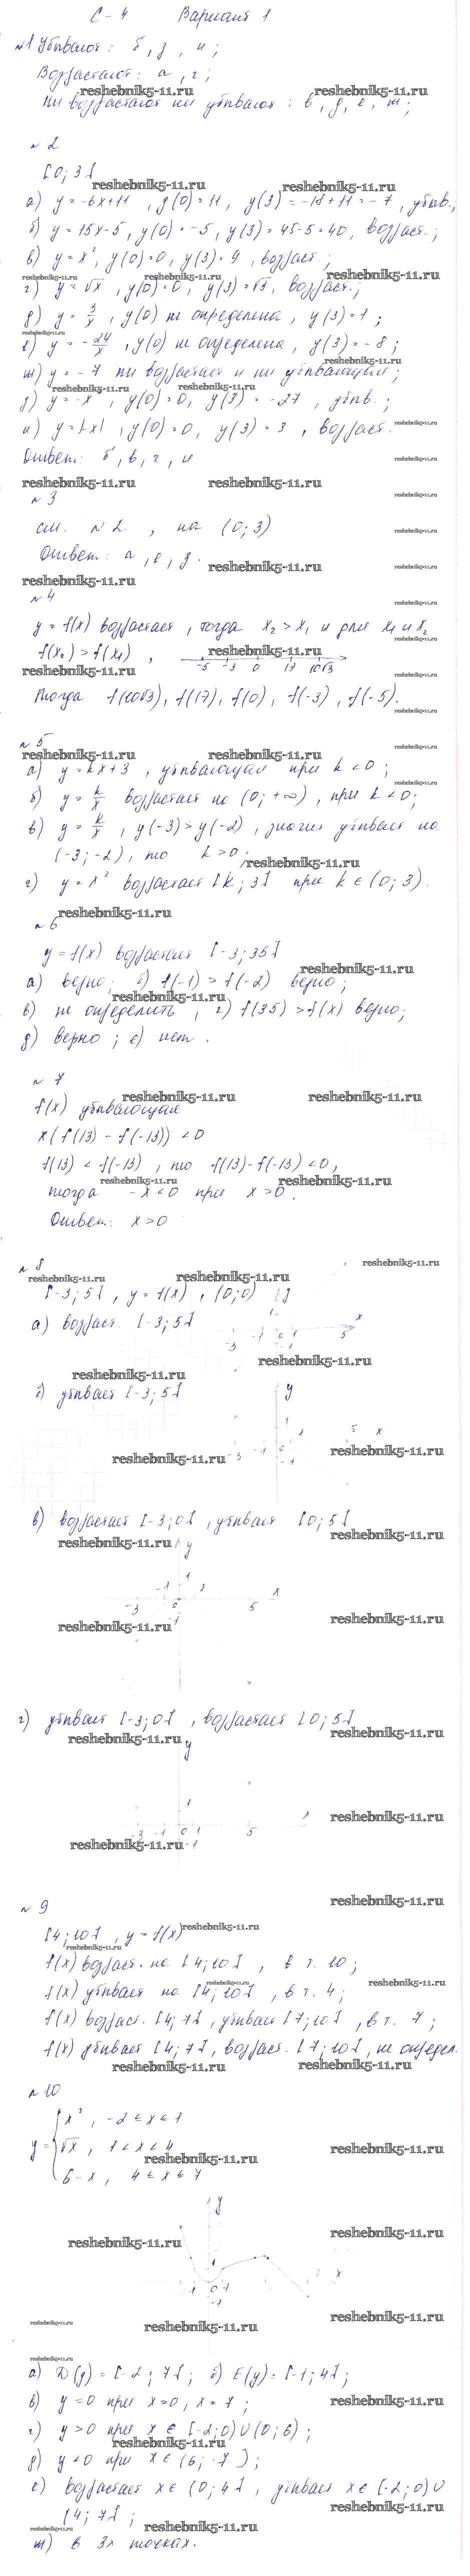 С-4 Вариант 1
№1 Убывают: б, з, и;
Возрастают: а, г;
reshebnik5-11.ru reshebnik5-11.ru
Ни возрастают ни убывают: в, д, е, ж;
№2
[0; 3]
reshebnik5-11.ru reshebnik5-11.ru
а) y = -6x+11, y(0) = 11, y(3) = -18+11 = -7, убыв.;
б) y = 15x-5, y(0) = -5, y(3) = 45-5 = 40, возраст.;
в) y = x², y(0) = 0, y(3) = 9, возраст.;
reshebnik5-11.ru reshebnik5-11.ru reshebnik5-11.ru
г) y = √x, y(0) = 0, y(3) = √3, возраст.;
д) y = 3/x, y(0) не определена, y(3) = 1;
reshebnik5-11.ru
е) y = -24/x, y(0) не определена, y(3) = -8;
reshebnik5-11.ru
ж) y = -7 ни возрастает и ни убывающая;
reshebnik5-11.ru reshebnik5-11.ru
y(0) = 0, y(3) = -27, убыв.;
и) y = |x|, y(0) = 0, y(3) = 3, возраст.
reshebnik5-11.ru
Ответ: б, в, г, и
reshebnik5-11.ru
reshebnik5-11.ru reshebnik5-11.ru reshebnik5-11.ru
№3
reshebnik5-11.ru
см. №2, на (0; 3)
reshebnik5-11.ru
Ответ: а, е, з.
reshebnik5-11.ru
reshebnik5-11.ru reshebnik5-11.ru
№4
reshebnik5-11.ru
y = f(x) возрастает, тогда x₂ > x₁ и для x₁ и x₂
reshebnik5-11.ru
f(x₂) > f(x₁),
reshebnik5-11.ru reshebnik5-11.ru
-5 -3 0 17 10√3
reshebnik5-11.ru
Тогда f(10√3), f(17), f(0), f(-3), f(-5).
reshebnik5-11.ru
№5
reshebnik5-11.ru reshebnik5-11.ru reshebnik5-11.ru
а) y = kx+3, убывающая при k < 0;
б) y = k/x возрастает на (0; +∞), при k < 0;
в) y = k/x, y(-3) > y(-2), значит убывает на
(-3; -2), то k > 0;
reshebnik5-11.ru
г) y = x² возрастает [k; 3] при k ∈ (0; 3).
reshebnik5-11.ru
№6
y = f(x) возрастает [-3; 35]
reshebnik5-11.ru
а) верно; б) f(-1) > f(-2) верно;
reshebnik5-11.ru
в) не определить; г) f(35) > f(x) верно;
д) верно; е) нет.
№7
reshebnik5-11.ru reshebnik5-11.ru
f(x) убывающая
x(f(13) - f(-13)) < 0
f(13) < f(-13), то f(13)-f(-13) < 0,
reshebnik5-11.ru reshebnik5-11.ru
тогда -x < 0 при x > 0.
Ответ: x > 0
№8
reshebnik5-11.ru
reshebnik5-11.ru reshebnik5-11.ru
[-3; 5], y = f(x), (0; 0) y
а) возраст. [-3; 5]
1 x
-3 -1 0 1 5
reshebnik5-11.ru
reshebnik5-11.ru
б) убывает [-3; 5] y
1 5 x
reshebnik5-11.ru -3 -1 0 reshebnik5-11.ru
-1
в) возрастает [-3; 0], убывает [0; 5]
reshebnik5-11.ru y reshebnik5-11.ru
1
-3 -1 0 5 x
-1
reshebnik5-11.ru reshebnik5-11.ru
г) убывает [-3; 0], возрастает [0; 5]
reshebnik5-11.ru reshebnik5-11.ru
y
1
reshebnik5-11.ru
-3 -1 0 1 5
reshebnik5-11.ru -1
reshebnik5-11.ru
№9
[4; 10], y = f(x) reshebnik5-11.ru
reshebnik5-11.ru
f(x) возраст. на [4; 10], в т. 10;
reshebnik5-11.ru reshebnik5-11.ru
f(x) убывает на [4; 10], в т. 4;
f(x) возраст. [4; 7], убывает [7; 10], в т. 7;
f(x) убывает [4; 7], возраст. [7; 10], не определ.
reshebnik5-11.ru reshebnik5-11.ru
№10
x², -2 ≤ x ≤ 1
y = √x, 1 < x < 4
reshebnik5-11.ru reshebnik5-11.ru
6-x, 4 ≤ x ≤ 7
y
reshebnik5-11.ru reshebnik5-11.ru
x
-1 0 1
-1
reshebnik5-11.ru reshebnik5-11.ru reshebnik5-11.ru
reshebnik5-11.ru
а) D(y) = [-2; 7]; б) E(y) = [-1; 4];
в) y = 0 при x = 0, x = 7;
reshebnik5-11.ru
г) y > 0 при x ∈ [-2; 0) ∪ (0; 6);
reshebnik5-11.ru
д) y < 0 при x ∈ (6; 7];
е) возрастает x ∈ (0; 4], убывает x ∈ [-2; 0) ∪
reshebnik5-11.ru
[4; 7];
reshebnik5-11.ru reshebnik5-11.ru reshebnik5-11.ru
ж) в 3х точках.